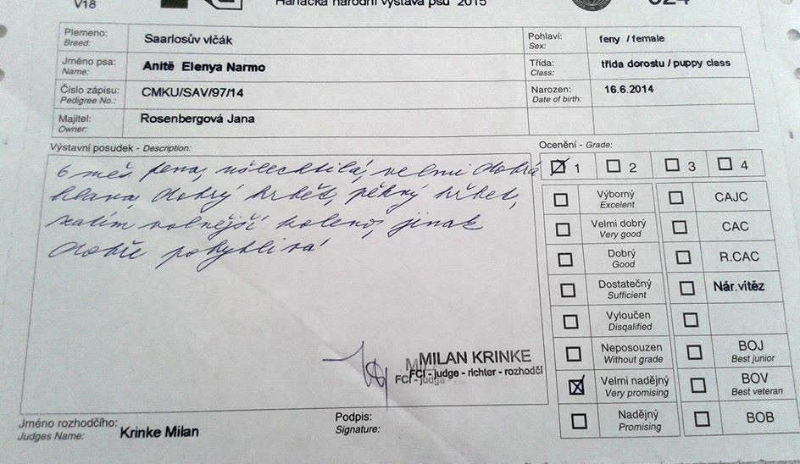 V18
Hanácká národní výstava psů 2015
Plemeno:
Breed:
Saarlosův vlčák
Pohlaví:
Sex:
feny / female
Jméno psa:
Name:
Anitě Elenya Narmo
Třída:
Class:
třída dorostu / puppy class
Číslo zápisu:
Pedigree No.:
CMKU/SAV/97/14
Narozen:
Date of birth:
16.6.2014
Majitel:
Owner:
Rosenbergová Jana
Výstavní posudek - Description:
6 měs. fena, ušlechtilá, velmi dobrá
hlava, dobrý hrbět, pěkný hřbet,
zatím volnější koleno, jinak
dobře pohyblivá
MILAN KRINKE
FCI - judge - richter - rozhodčí
FCI - judge
Jméno rozhodčího:
Judges Name:
Krinke Milan
Podpis:
Signature:
Ocenění - Grade:
1 2 3 4
Výborný
Excelent
CAJC
Velmi dobrý
Very good
CAC
Dobrý
Good
R.CAC
Dostatečný
Sufficient
Nár.vítěz
Vyloučen
Disqalified
Neposouzen
Without grade
BOJ
Best junior
Velmi nadějný
Very promising
BOV
Best veteran
Nadějný
Promising
BOB